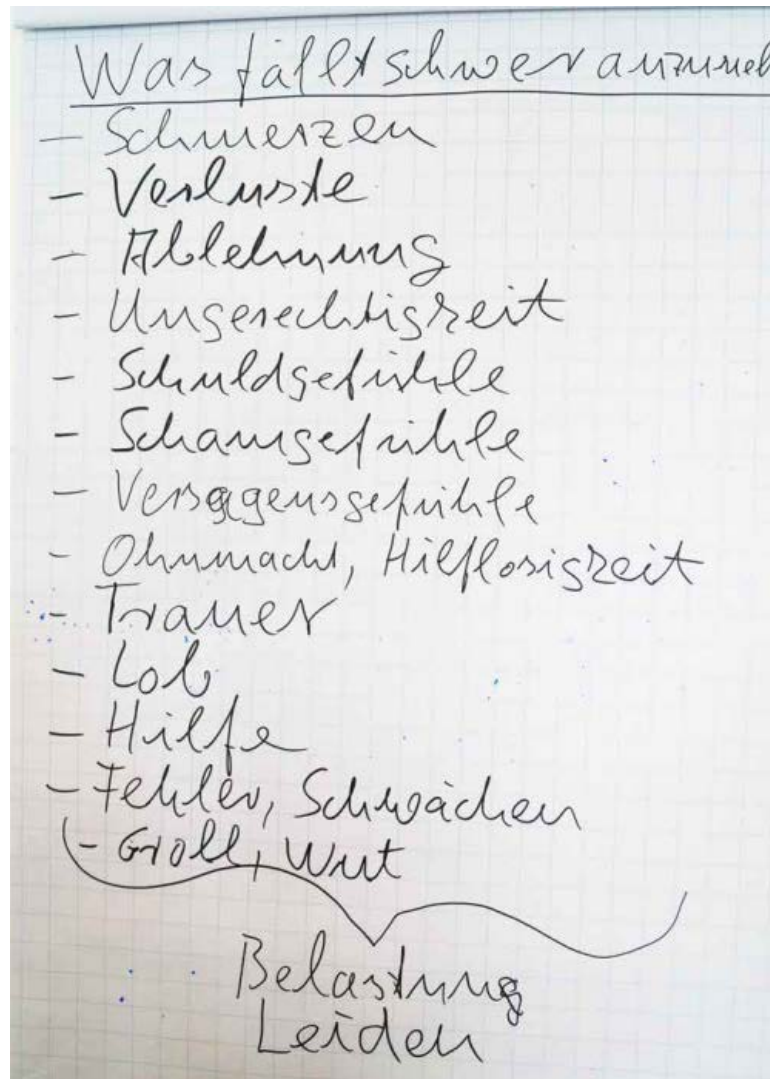 Was fällt schwer anzuneh
- Schmerzen
- Verluste
- Ablehnung
- Ungerechtigkeit
- Schuldgefühle
- Schamgefühle
- Versagensgefühle
- Ohnmacht, Hilflosigkeit
- Trauer
- Lob
- Hilfe
- Fehler, Schwächen
- Groll, Wut
Belastung
Leiden